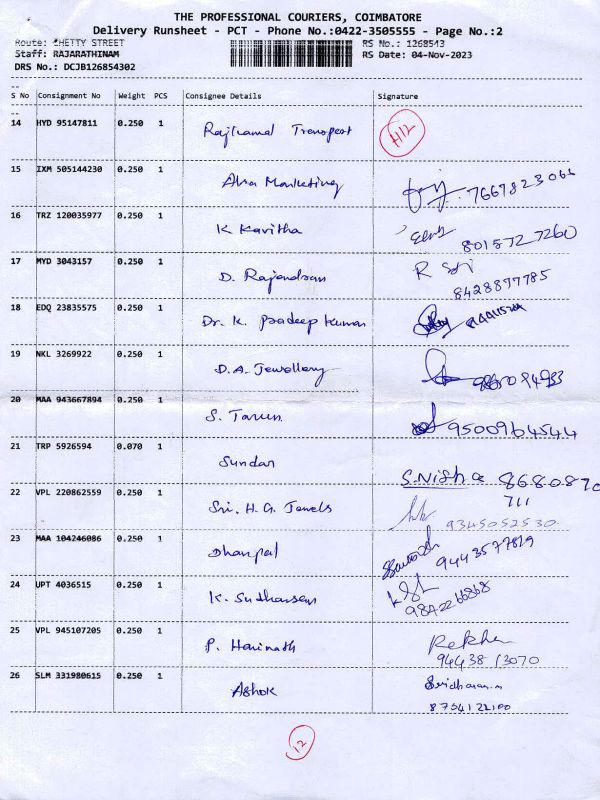 THE PROFESSIONAL COURIERS, COIMBATORE
Delivery Runsheet - PCT - Phone No.:0422-3505555 - Page No.:2
Route: CHETTY STREET RS No.: 1268543
Staff: RAJARATHINAM RS Date: 04-Nov-2023
DRS No.: DCJB126854302
S No Consignment No Weight PCS Consignee Details Signature
14 HYD 95147811 0.250 1 Rajkamal Transport H12
15 IXM 505144230 0.250 1 Marketing
16 TRZ 120035977 0.250 1 K Kavitha
8015727260
17 MYD 3043157 0.250 1 D. Rajendran R
8428877785
18 EDQ 23835575 0.250 1 Dr. K. Pradeep Kumar
19 NKL 3269922 0.250 1 D.A. Jewellery
20 MAA 943667894 0.250 1 S. Tarun
9500964544
21 TRP 5926594 0.070 1 Sundar S.Nisha 8680870
711
22 VPL 220862559 0.250 1 Sri. H.G. Jewels
9345052530
23 MAA 104246086 0.250 1 Dhanpal
9443577819
24 UPT 4036515 0.250 1 K. Sudharsan
9842266868
25 VPL 945107205 0.250 1 P. Harinath Rekha
94438 13070
26 SLM 331980615 0.250 1 Ashok Sridharan.n
8754122100
12